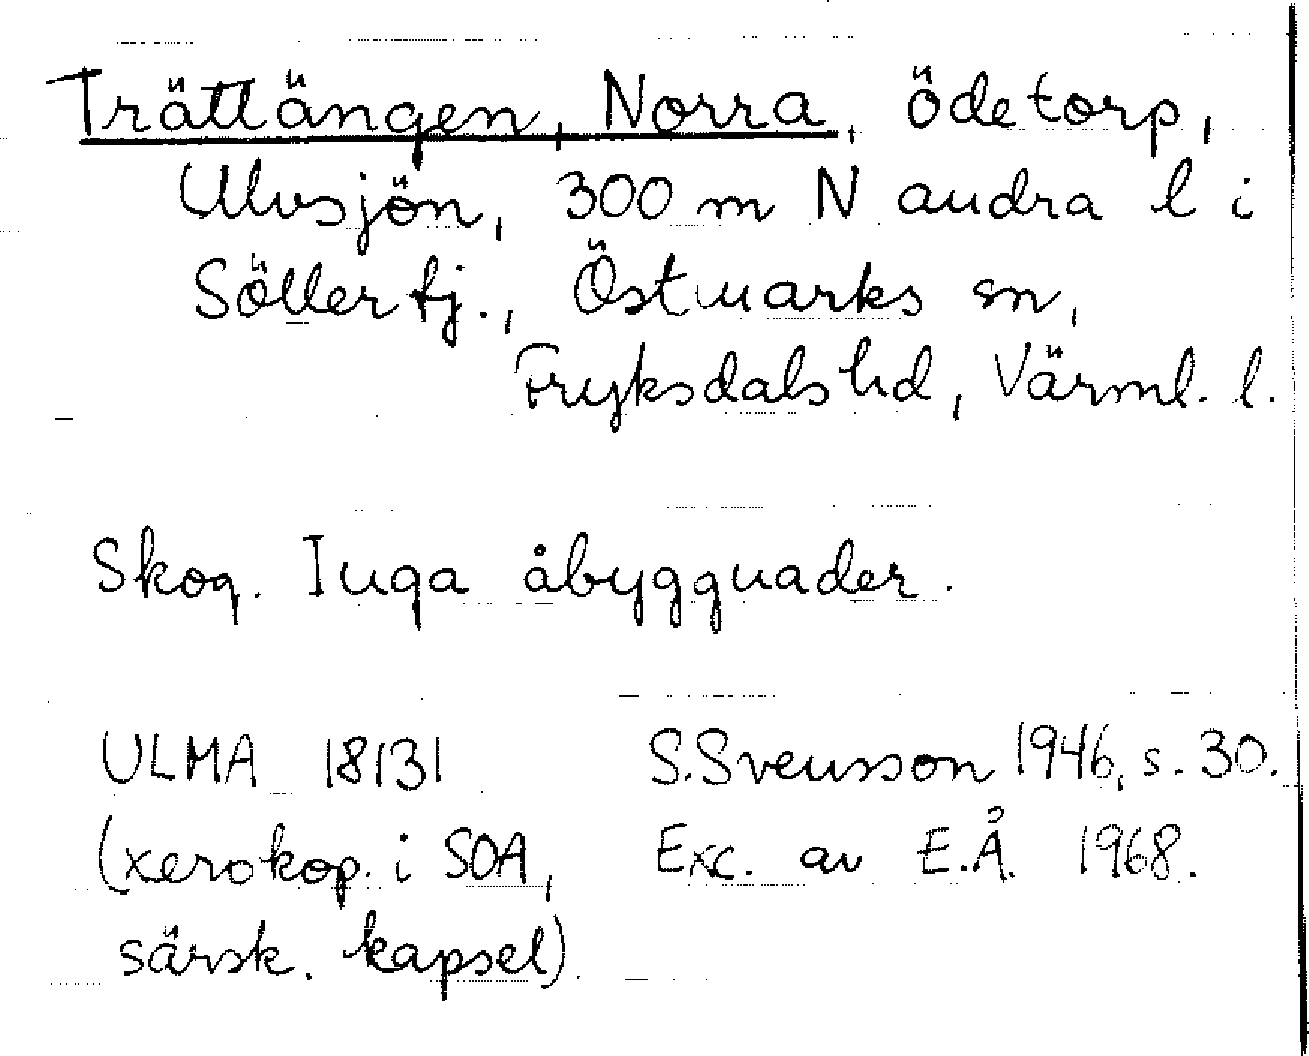 Trättängen, Norra, ödetorp,
Ulvsjön, 300 m N andra l i
Söllertj., Östmarks sn,
Fryksdals hd, Värml. l.
Skog. Inga åbyggnader.
ULMA 18131 S.Svensson 1946, s. 30.
(xerokop. i SOA, Exc. av E.Å. 1968.
särsk. kapsel)